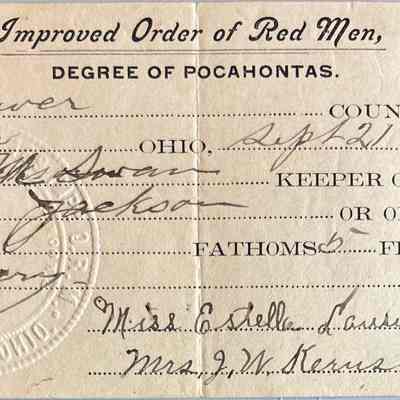 Improved Order of Red Men,
DEGREE OF POCAHONTAS.
COUN
OHIO, Sept 21
Swan KEEPER O
Jackson OR O
FATHOMS 5 F
Miss Estella
Mrs. J. W. Kerns